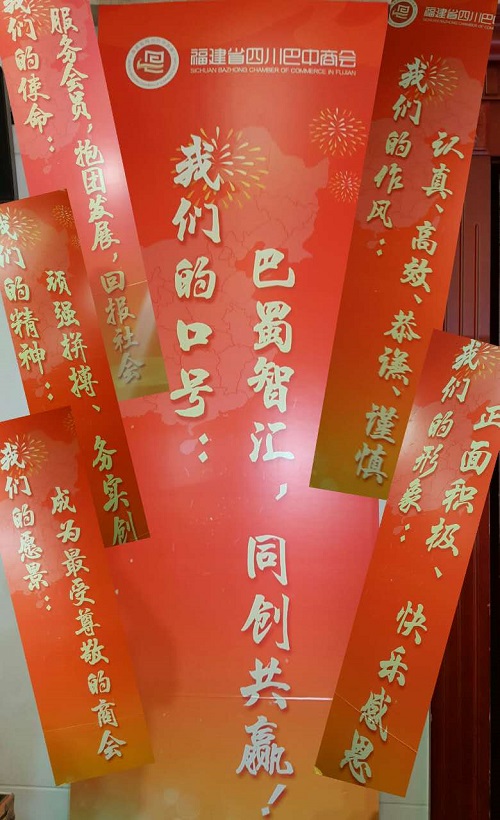 福建省四川巴中商会
SICHUAN BAZHONG CHAMBER OF COMMERCE IN FUJIAN
我们的口号：
巴蜀智汇，同创共赢！
我们的使命：
服务会员，抱团发展，回报社会
我们的精神：
顽强拼搏、务实创
我们的愿景：
成为最受尊敬的商会
福建省四川巴
SICHUAN BAZHONG CHAMBER OF COM
我们的作风：
认真、高效、恭谦、谨慎
我们的形象：
正面积极、快乐感恩